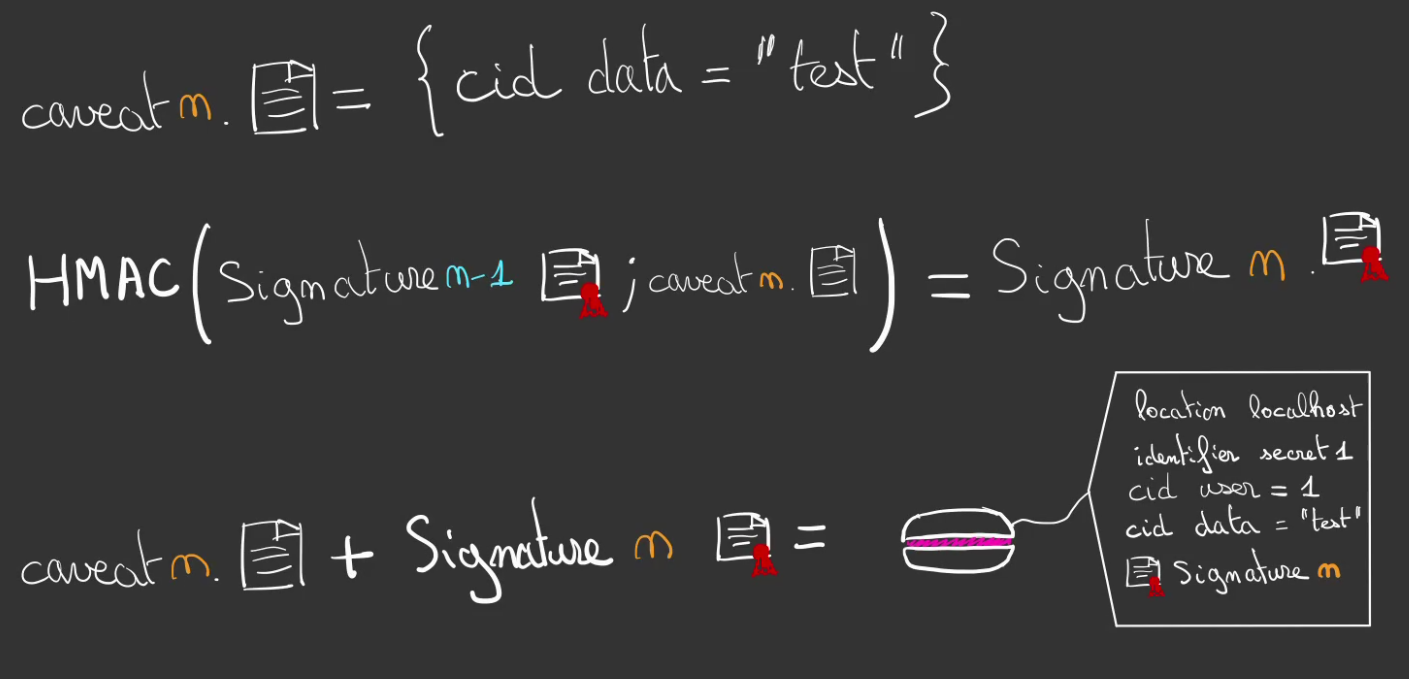 caveat n. = { cid data = "test" }
HMAC ( Signature n-1 ; caveat n. ) = Signature n .
location localhost
identifier secret 1
cid user = 1
cid data = "test"
Signature n
caveat n. + Signature n =